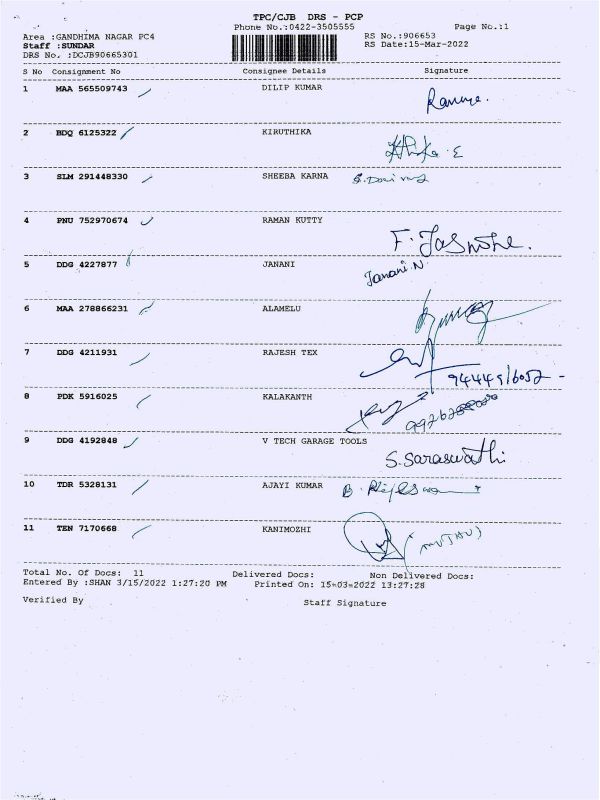 TPC/CJB DRS - PCP
Phone No.:0422-3505555 Page No.:1
Area :GANDHIMA NAGAR PC4 RS No.:906653
Staff :SUNDAR RS Date:15-Mar-2022
DRS No. :DCJB90665301
S No Consignment No Consignee Details Signature
1 MAA 565509743 DILIP KUMAR
2 BDQ 6125322 KIRUTHIKA
3 SLM 291448330 SHEEBA KARNA
4 PNU 752970674 RAMAN KUTTY
F. Jasmine.
5 DDG 4227877 JANANI Janani.N
6 MAA 278866231 ALAMELU
7 DDG 4211931 RAJESH TEX
9444916052 -
8 PDK 5916025 KALAKANTH
9 DDG 4192848 V TECH GARAGE TOOLS
S. Saraswathi
10 TDR 5328131 AJAYI KUMAR
11 TEN 7170668 KANIMOZHI
(MUTHU)
Total No. Of Docs: 11 Delivered Docs: Non Delivered Docs:
Entered By :SHAN 3/15/2022 1:27:20 PM Printed On: 15-03-2022 13:27:28
Verified By Staff Signature